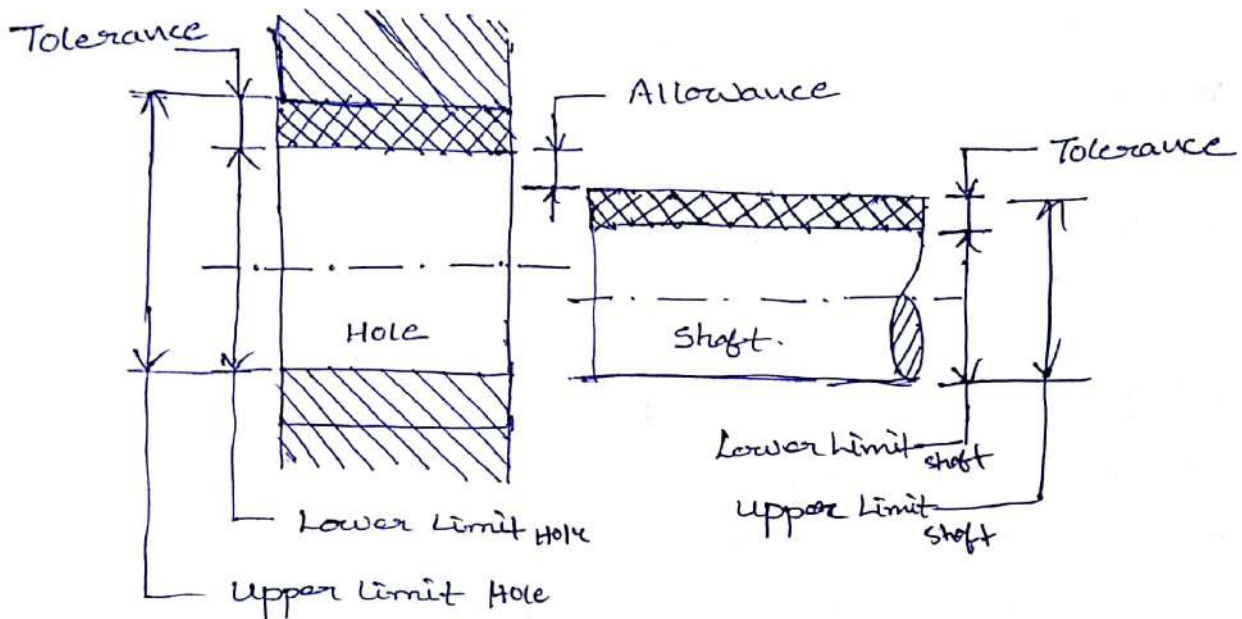 Tolerance
Allowance
Tolerance
Hole
Shaft.
Lower Limit shaft
Upper Limit shaft
Lower Limit Hole
Upper Limit Hole